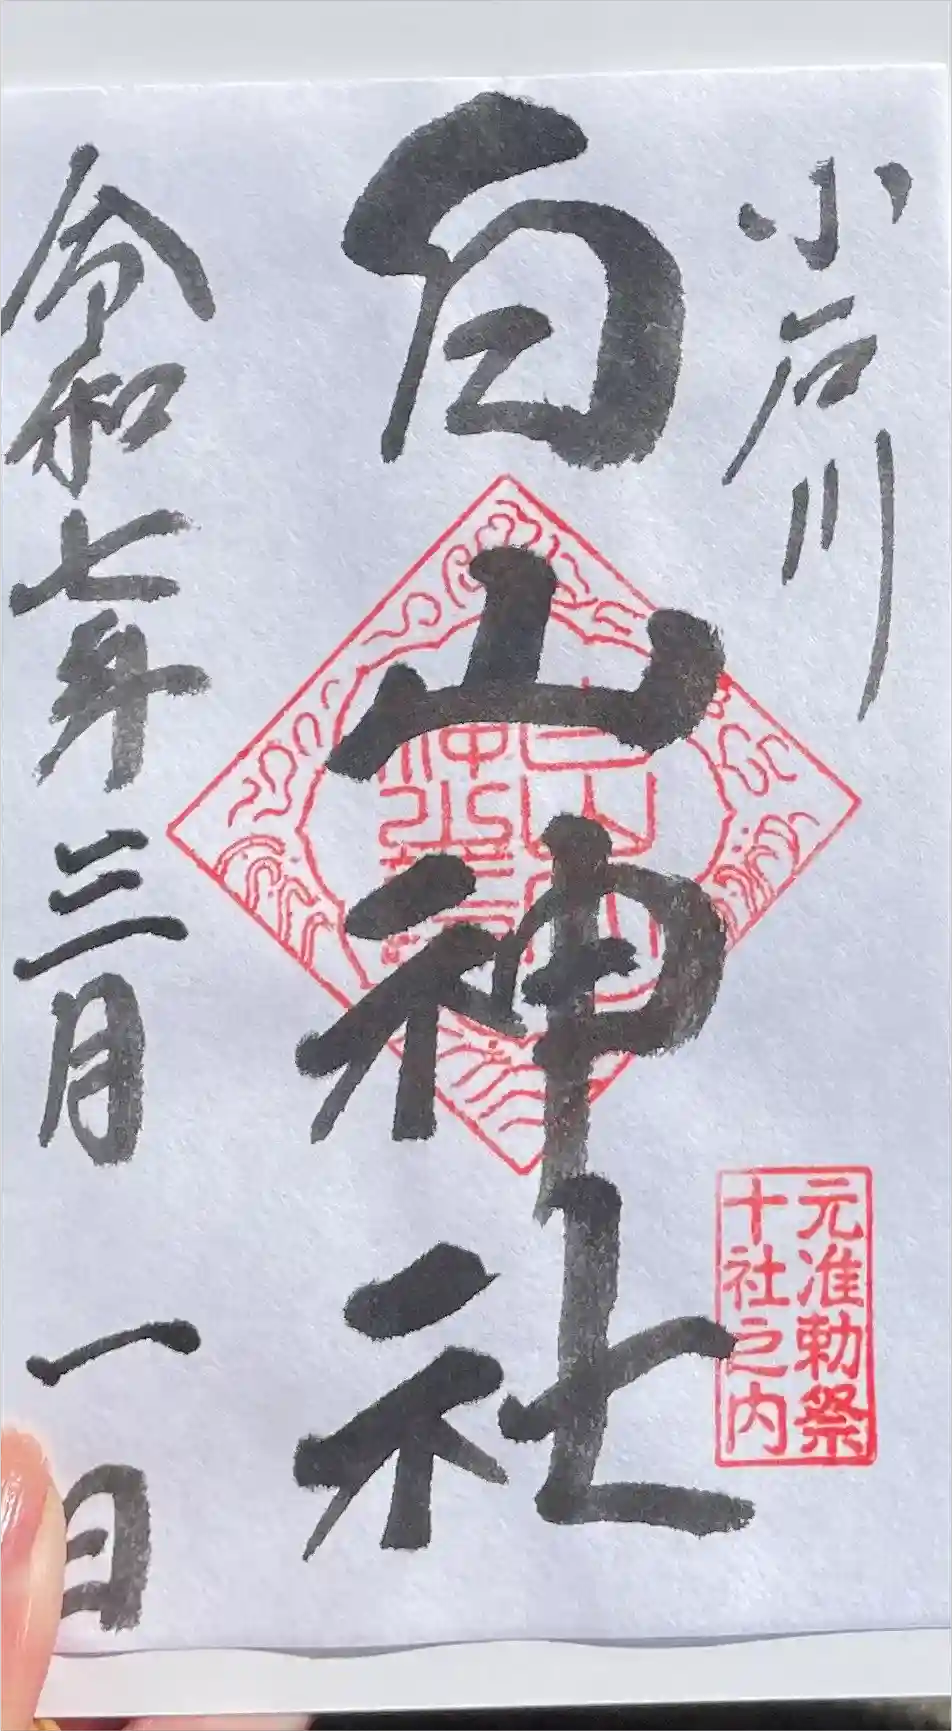 小石川
元准勅祭
十社之内
白山神社
令和七年三月一日